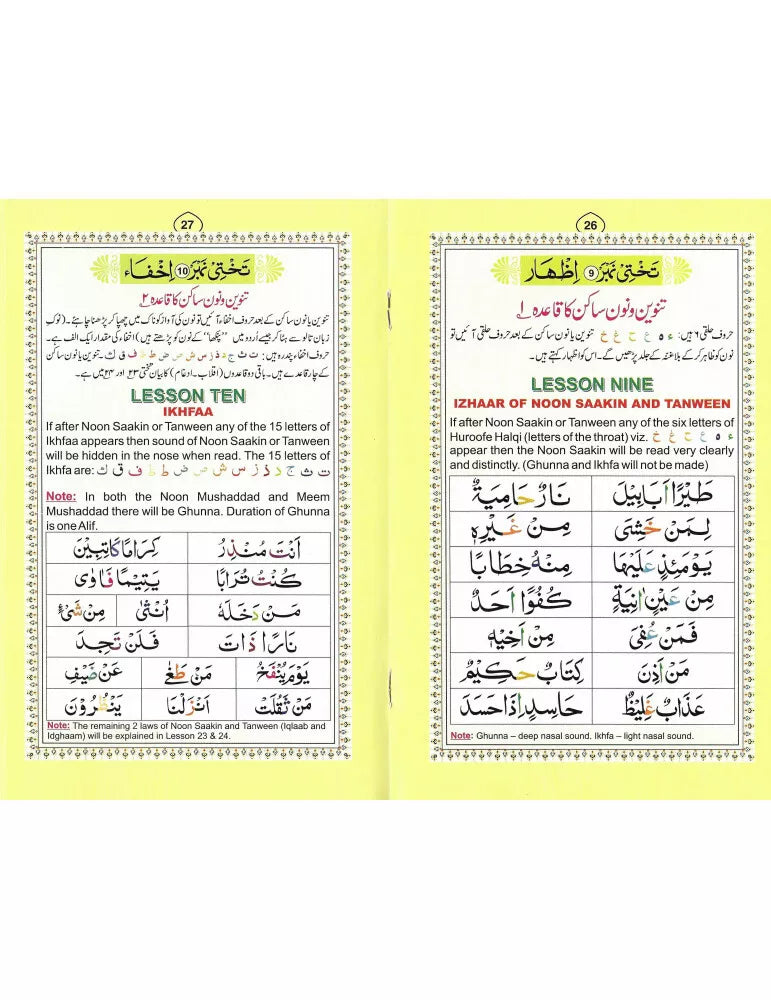 26
تختی نمبر 9 اِظْهَار
تنوین و نون ساکن کا قاعدہ ۱
حروف حلقی ۶ ہیں: ء ہ ع ح غ خ تنوین یا نون ساکن کے بعد حروف حلقی آئیں تو
نون کو ظاہر کر کے بلا غنہ کے جلد پڑھیں گے۔ اس کو اظہار کہتے ہیں۔
LESSON NINE
IZHAAR OF NOON SAAKIN AND TANWEEN
If after Noon Saakin or Tanween any of the six letters of
Huroofe Halqi (letters of the throat) viz. ء ہ ع ح غ خ
appear then the Noon Saakin will be read very clearly
and distinctly. (Ghunna and Ikhfa will not be made)
طَيْرًا اَبَابِيْلَ نَارٌ حَامِيَةٌ
لِمَنْ خَشِىَ مِنْ غَيْرِهٖ
يَوْمَئِذٍ عَلَيْهَا مِنْهُ خِطَابًا
مِنْ عَيْنٍ اٰنِيَةٍ كُفُوًا اَحَدٌ
فَمَنْ عُفِىَ مِنْ اَخِيْهِ
مَنْ اَذِنَ كِتَابٌ حَكِيْمٌ
عَذَابٌ غَلِيْظٌ حَاسِدٍ اِذَا حَسَدَ
Note: Ghunna – deep nasal sound. Ikhfa – light nasal sound.
27
تختی نمبر 10 اِخْفَاء
تنوین و نون ساکن کا قاعدہ ۲
تنوین یا نون ساکن کے بعد حروف اخفاء آئیں تو نون کی آواز کو ناک میں چھپا کر پڑھنا چاہئے۔ (نوک
زبان تالو سے ہٹا کر جیسے اُردو میں "پنکھا" کے نون کو پڑھتے ہیں) اخفاء کی مقدار ایک الف ہے۔
حروف اخفاء پندرہ ہیں: ت ث ج د ذ ز س ش ص ض ط ظ ف ق ک۔ تنوین یا نون ساکن
کے چار قاعدے ہیں۔ باقی دو قاعدوں (اقلاب۔ ادغام) کا بیان تختی ۲۳ اور ۲۴ میں ہے۔
LESSON TEN
IKHFAA
If after Noon Saakin or Tanween any of the 15 letters of
Ikhfaa appears then sound of Noon Saakin or Tanween
will be hidden in the nose when read. The 15 letters of
Ikhfa are: ت ث ج د ذ ز س ش ص ض ط ظ ف ق ک
Note: In both the Noon Mushaddad and Meem
Mushaddad there will be Ghunna. Duration of Ghunna
is one Alif.
اَنْتَ مُنْذِرُ كِرَامًا كَاتِبِيْنَ
كُنْتُ تُرَابًا يَتِيْمًا فَاٰوٰى
مَنْ دَخَلَهٗ اُنْثٰى مِنْ شَىْءٍ
نَارًا ذَاتَ فَلَنْ تَجِدَ
يَوْمَ يُنْفَخُ مَنْ طَغٰى عَنْ ضَيْفِ
مَنْ ثَقُلَتْ اَنْزَلْنَا يَنْظُرُوْنَ
Note: The remaining 2 laws of Noon Saakin and Tanween (Iqlaab and
Idghaam) will be explained in Lesson 23 & 24.